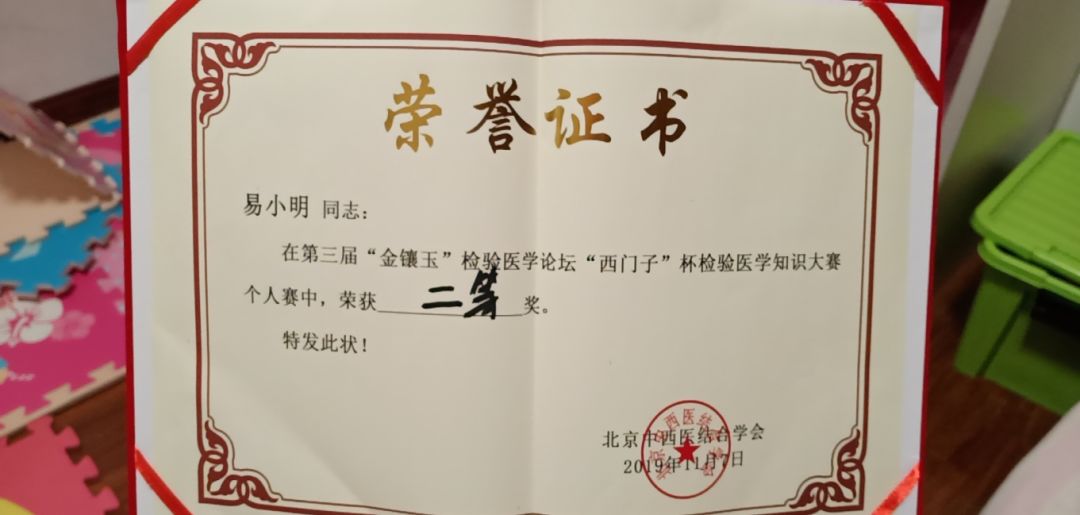 荣誉证书
易小明 同志：
在第三届“金镶玉”检验医学论坛“西门子”杯检验医学知识大赛
个人赛中，荣获二等奖。
特发此状！
北京中西医结合学会
2019年11月7日
北京中西医结合学会